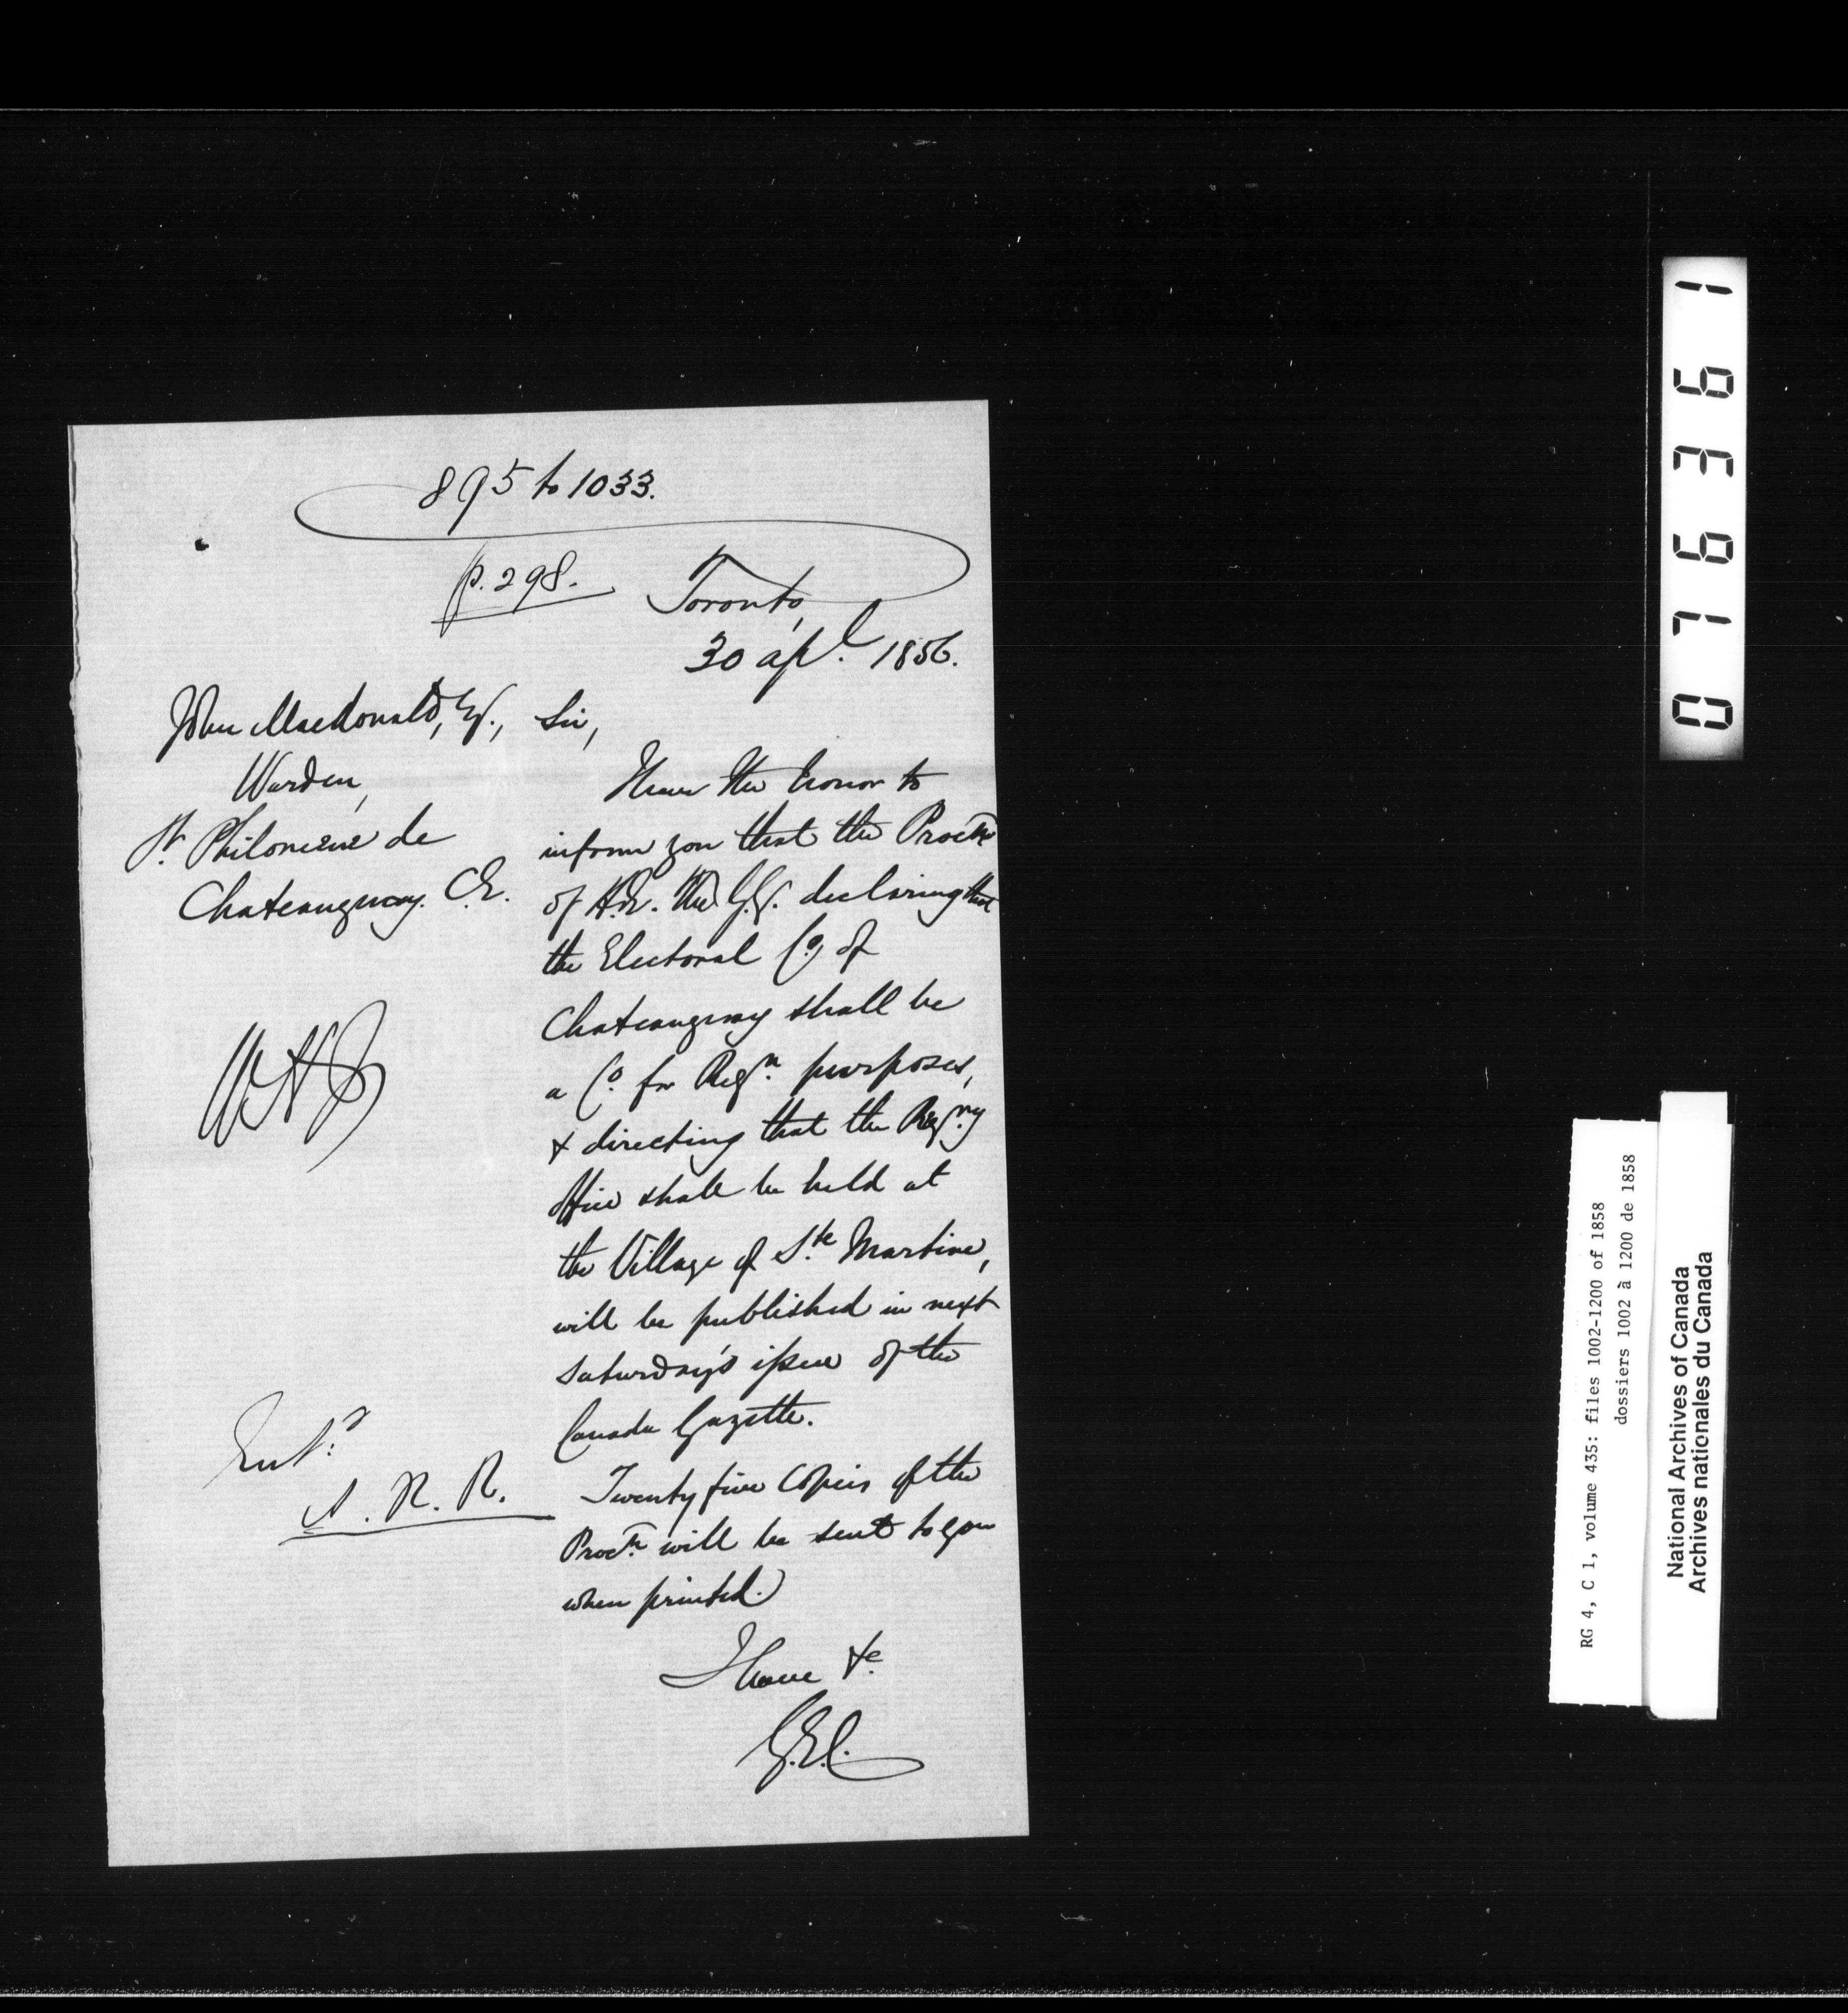 895 to 1033.
p. 298.
Toronto,
30 apl. 1856.
John Macdonald, Esq.,
Warden,
St. Philomène de
Chateauguay. C.E.
Sir,
I have the honor to
inform you that the Proctn
of H.E. the G.G. declaring that
the Electoral Co. of
Chateauguay shall be
a Co. for Regn. purposes,
& directing that the Regry
Office shall be held at
the Village of Ste. Martine,
will be published in next
Saturday's issue of the
Canada Gazette.
Twenty five Copies of the
Proctn. will be sent to you
when printed.
I have &c.
G.E.C.
Entd.
A. R. R.
076361
RG 4, C 1, volume 435: files 1002-1200 of 1858
dossiers 1002 à 1200 de 1858
National Archives of Canada
Archives nationales du Canada